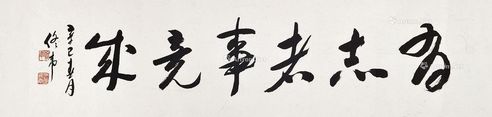 有志者事竟成
辛巳春月